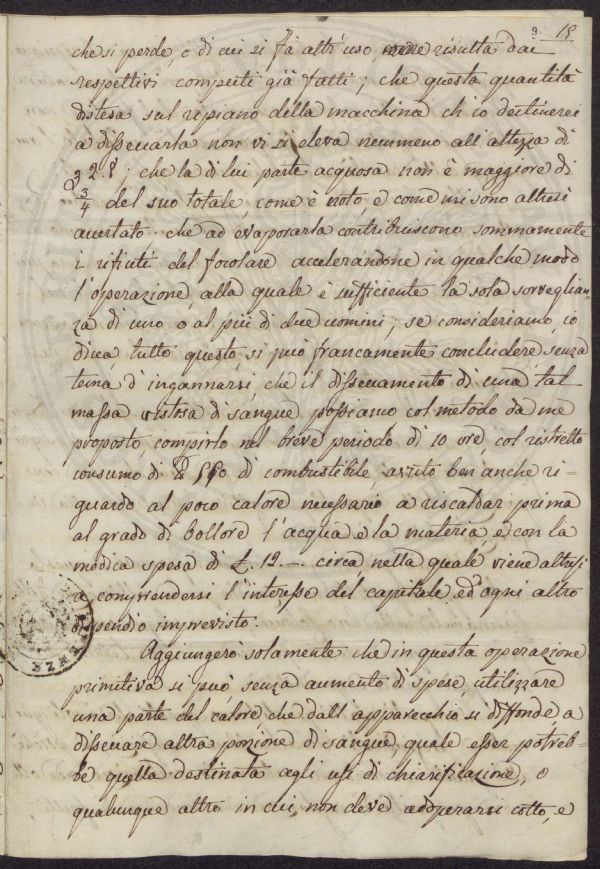 9 15
che si perde, o di cui si fà altr'uso, risulta dai
respettivi computi già fatti; che questa quantità
distesa sul ripiano della macchina ch'io destinerei
a disseccarla non vi si eleva nemmeno all'altezza di
2. ; che la di lui parte acquosa non è maggiore di
3/4 del suo totale, come è noto, e come mi sono altresì
accertato; che ad evaporarla contribuiscono sommamente
i rifiuti del focolare accelerandone in qualche modo
l'operazione, alla quale è sufficiente la sola sorveglian-
za di uno o al più di due uomini; se consideriamo, io
dicea, tutto questo, si può francamente concludere, senza
tema d'ingannarsi, che il disseccamento di una tal
massa vistosa di sangue possiamo col metodo da me
proposto, compirlo nel breve periodo di 10 ore, col ristretto
consumo di di combustibile, avuto ben anche ri-
guardo al poco calore necessario a riscaldar prima
al grado di bollore l'acqua e la materia, e con la
modica spesa di £. 12.-- circa nella quale viene altresì
a comprendersi l'interesse del capitale, ed ogni altro
dispendio imprevisto.
Aggiungerò solamente che in questa operazione
primitiva si può, senza aumento di spese, utilizzare
una parte del calore che dall'apparecchio si diffonde, a
disseccare altra porzione di sangue, quale esser potreb-
be quella destinata agli usi di chiarificazione, o
qualunque altro in cui non deve adoperarsi cotto, e